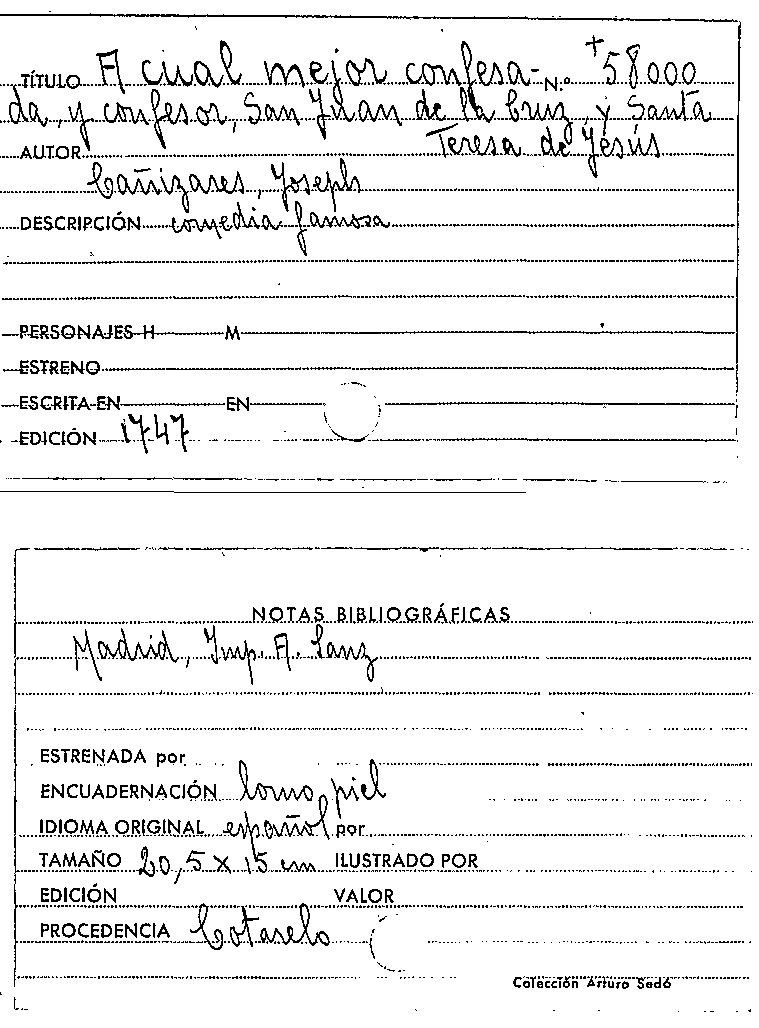 TÍTULO A cual mejor confesa- N.º +58000
da, y confesor, San Juan de la Cruz, y Santa
AUTOR Teresa de Jesús
Cañizares, Joseph
DESCRIPCIÓN comedia famosa
PERSONAJES H M
ESTRENO
ESCRITA EN EN
EDICIÓN 1747
NOTAS BIBLIOGRÁFICAS
Madrid, Imp. A. Sanz
ESTRENADA por
ENCUADERNACIÓN lomo piel
IDIOMA ORIGINAL español por
TAMAÑO 20,5 x 15 cm ILUSTRADO POR
EDICIÓN VALOR
PROCEDENCIA Cotarelo
Colección Arturo Sedó